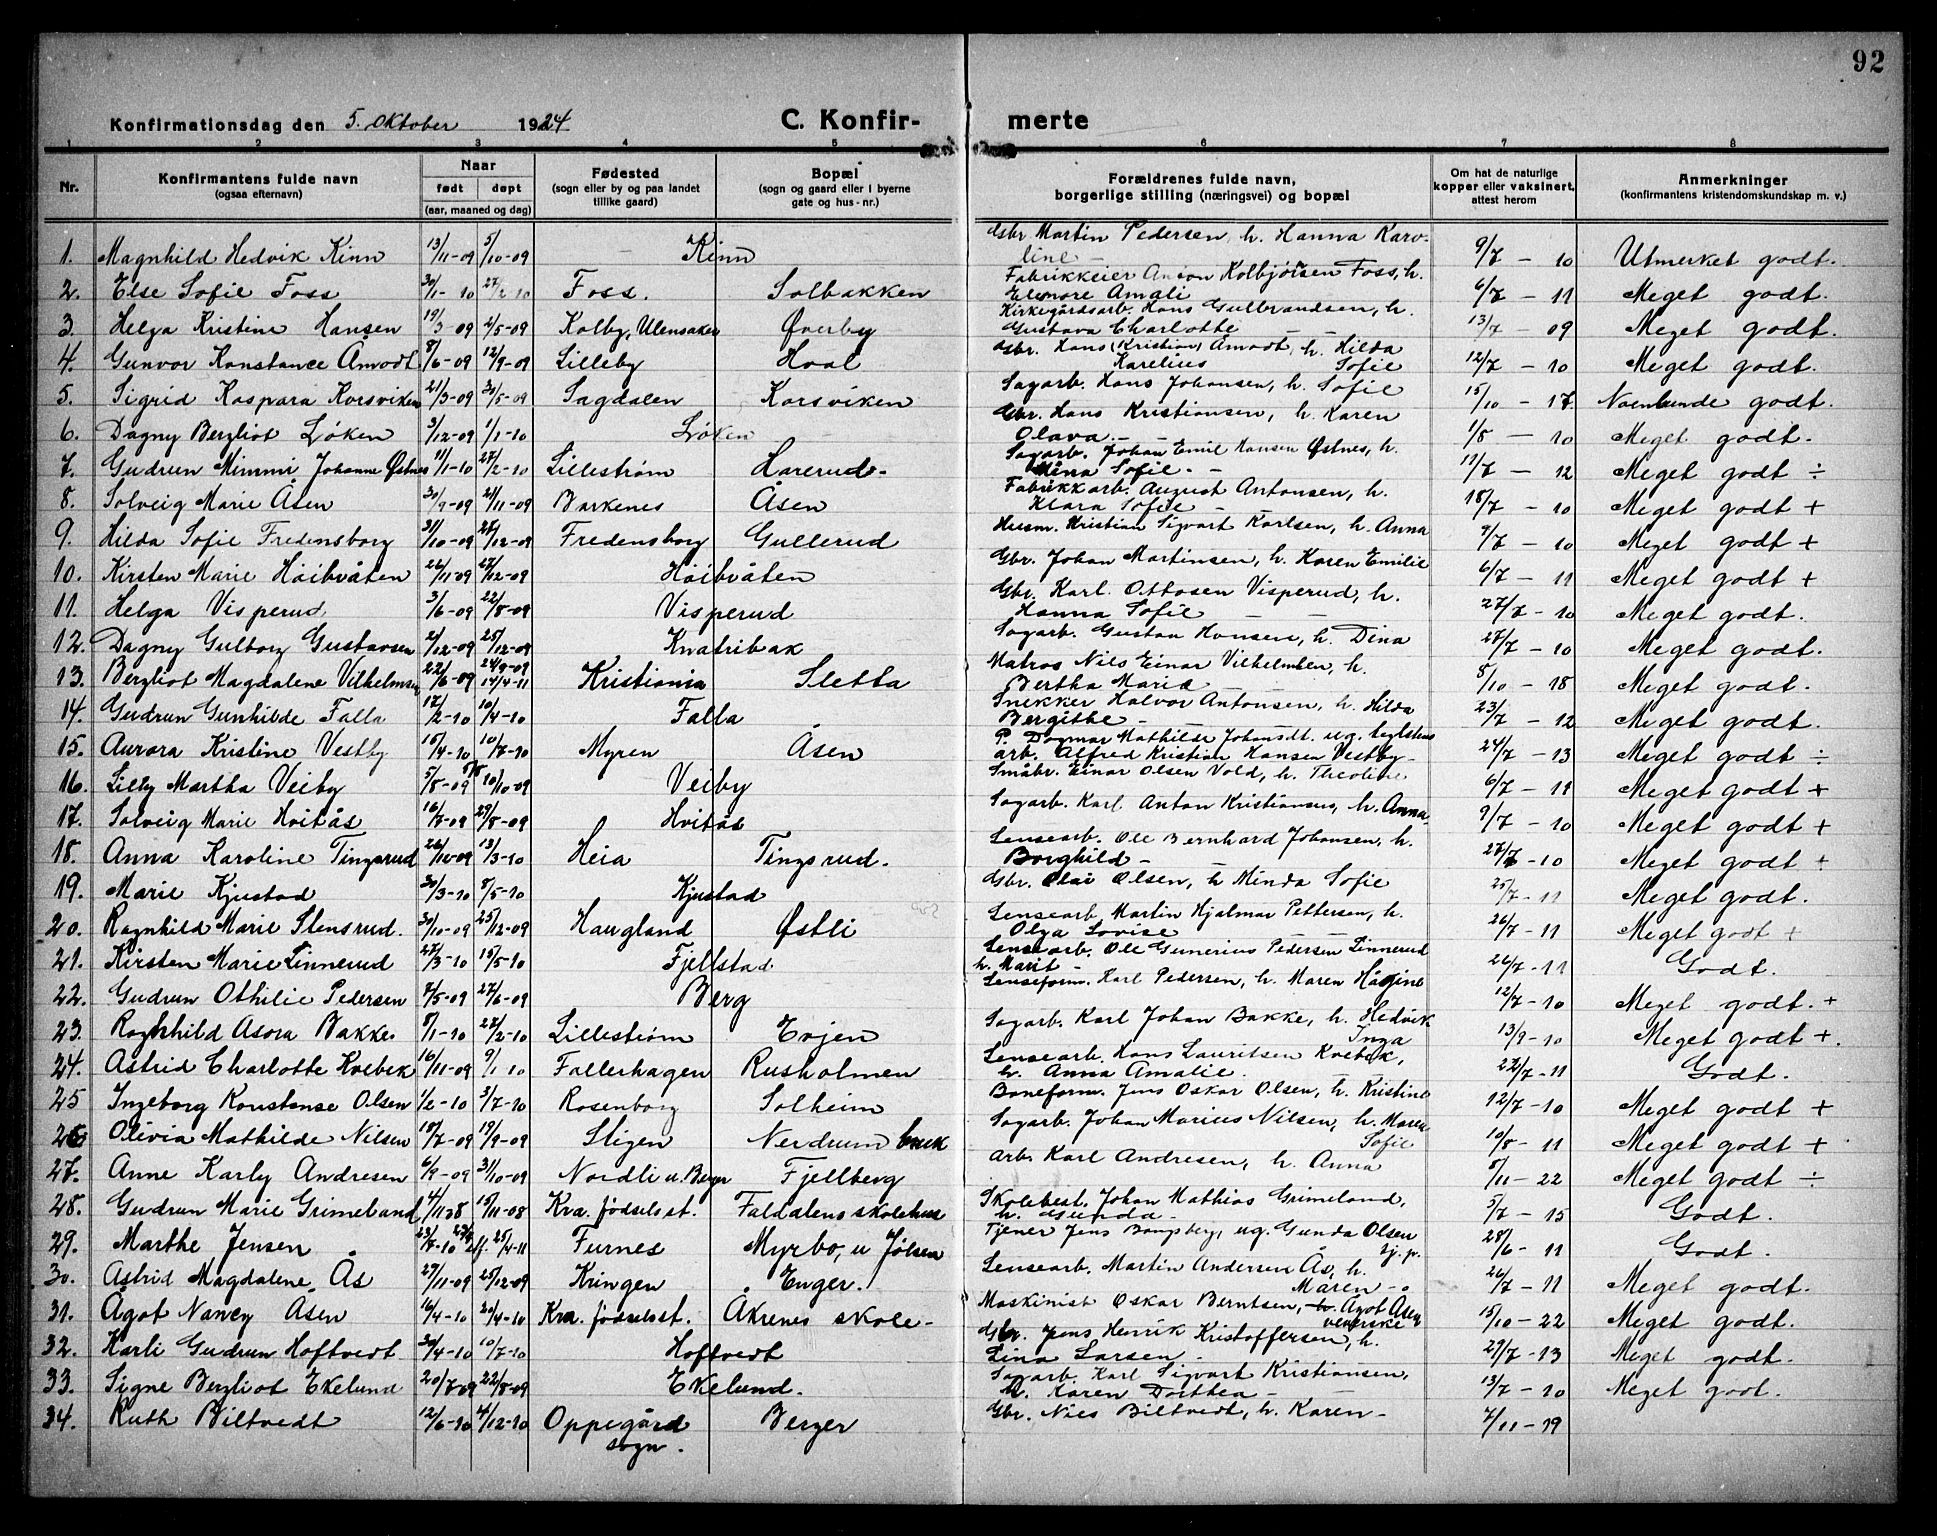 92
Konfirmationsdag den 5. Oktober 1924 C. Konfir- merte
1 2 3 4 5 6 7 8
Nr. Konfirmantens fulde navn (ogsaa efternavn) Naar født døpt (aar, maaned og dag) Fødested (sogn eller by og paa landet tillike gaard) Bopæl (sogn og gaard eller i byerne gate og hus-nr.) Forældrenes fulde navn, borgerlige stilling (næringsvei) og bopæl Om hat de naturlige kopper eller vaksinert, attest herom Anmerkninger (konfirmantens kristendomskundskap m. v.)
1. Magnhild Hedvik Kinn 13/11-09 5/10-09 Kinn Gbr. Martin Pedersen, h. Hanna Karoline 9/7 - 10 Utmerket godt.
2. Else Sofie Foss 30/1-10 27/2-10 Foss. Solbakken Fabrikkeier Anton Kolbjørsen Foss, h. Elenore Amali 6/7 - 11 Meget godt.
3. Helga Kristine Hansen 19/3 09 2/5-09 Kolby, Ulensaker Øverby Kirkegårdsarb. Hans Gulbrandsen, h. Gustava Charlotte 13/7 - 09 Meget godt.
4. Gunvor Konstance Åmodt 8/6-09 12/9-09 Lilleby Hval Gbr. Hans (Kristian) Karelius Åmodt, h. Hilda Sofie 12/7 - 10 Meget godt.
5. Sigrid Kaspara Korsviken 21/3-09 30/5-09 Sagdalen Korsviken Sagarb. Hans Johansen, h. Sofie 15/10 - 17. Noenlunde godt.
6. Dagny Bergliot Løken 3/12-09 1/1-10 Løken Gbr. Hans Kristiansen, h. Karen Olava 1/8 - 10 Meget godt.
7. Gudrun Mimmi Johanne Østnes 11/1-10 27/2-10 Lillestrøm Harerud Sagarb. Johan Emil Hansen Østnes, h. Mina Sofie 11/7 - 12 Meget godt ÷
8. Solveig Marie Åsen 30/9-09 21/11-09 Barkenes Åsen Fabrikkarb. August Antonsen, h. Klara Sofie 18/7 - 10 Meget godt +
9. Hilda Sofie Fredensborg 31/10-09 27/12-09 Fredensborg Gullerud Husm. Kristian Sigvart Karlsen, h. Anna 9/7 - 10 Meget godt +
10. Kirsten Marie Høibråten 26/11-09 27/12-09 Høibråten Gbr. Johan Martinsen, h. Karen Emilie 6/7 - 11 Meget godt +
11. Helga Visperud 3/6-09 22/8-09 Visperud Gbr. Karl Ottosen Visperud, h. Hanna Sofie 27/7 - 10 Meget godt.
12. Dagny Gulborg Gustavsen 2/12-09 25/12-09 Knatribak Sagarb. Gustav Hansen, h. Dina 27/7 - 10 Meget godt.
13. Bergliot Magdalene Vilhelmsen 22/6-09 24/9-09 14/4-11 Kristiania Sletta Matros Nils Einar Vilhelmsen, h. Bertha Maria 8/10 - 18 Meget godt.
14. Gudrun Gunhilde Falla 12/2-10 10/4-10 Falla Snekker Halvor Antonsen, h. Hilda Bergithe 23/7 - 12 Meget godt.
15. Aurora Kristine Vestby 15/4-10 10/7-10 Myren Åsen P. Dagmar Mathilde Johansdt. ug. teglverks arb. Alfred Kristian Hansen Vestby 24/7 - 13 Meget godt ÷
16. Lilly Martha Veiby 5/8-09 10/10-09 Veiby Småbr. Einar Olsen Vold, h. Theoline 6/7 - 11 Meget godt +
17. Solveig Marie Hvitås 16/7-09 29/8-09 Hvitås Sagarb. Karl Anton Kristiansen, h. Anna 9/7 - 10 Meget godt +
18. Anna Karoline Tingsrud 26/10-09 13/3-10 Heia Tingsrud. Lensearb. Ole Bernhard Johansen, h. Borghild 27/7 - 10 Meget godt +
19. Marie Kjustad 30/3-10 8/5-10 Kjustad Gbr. Olai Olsen, h Minda Sofie 25/7 - 11 Meget godt.
20. Ragnhild Marie Stensrud. 30/10-09 25/12-09 Haugland Østli Lensearb. Martin Hjalmar Pettersen, h. Olga Lovise 26/7 - 11 Meget godt +
21. Kirsten Marie Linnerud 27/3-10 15/5-10 Fjellstad Lensearb. Ole Gunerius Pedersen Linnerud h. Marit 26/7 - 11 Godt.
22. Gudrun Othilie Pedersen 7/5-09 27/6-09 Berg Lenseform. Karl Pedersen, h. Maren Hågine 12/7 - 10 Meget godt. +
23. Ragnhild Asora Bakke 8/1-10 27/2-10 Lillestrøm Evjen Sagarb. Karl Johan Bakke, h. Hedvik Inga 13/9 - 10 Meget godt +.
24. Astrid Charlotte Kvebek 16/11-09 9/1 10 Fallerhagen Rusholmen Lensearb. Hans Lauritsen Kvebek, h. Anna Amalie. 22/7 - 11 Godt.
25 Ingeborg Konstanse Olsen 1/2-10 3/7-10 Rosenborg Solheim Baneform. Jens Oskar Olsen, h. Kristine 12/7 - 10 Meget godt +
26 Olivia Mathilde Nilsen 18/7-09 19/9-09 Stigen Nerdrum bruk Sagarb. Johan Marius Nilsen, h. Maren Sofie 10/8 - 11 Meget godt +
27. Anne Karly Andresen 6/9-09 31/10-09 Nordli u. Berger Fjellberg Arb. Karl Andresen, h. Anna 8/11 - 22 Meget godt ÷
28. Gudrun Marie Grimeland 4/11 08 15/11-08 Kra. fødselsst. Faldalens skolehus Skolebest. Johan Mathias Grimeland, h. Gunda 5/7 - 15 Godt.
29. Marthe Jensen 23/7-10 25/4-11 Furnes Myrbo, u Jølsen Tjener Jens Bangsberg, ug. Gunda Olsen 28/6 - 11 Godt.
30. Astrid Magdalene Ås 27/11-09 25/12-09 Kringen Enger. Lensearb. Martin Andersen Ås, h. Maren 26/7 - 11 Meget godt.
31. Ågot Nancy Åsen 16/4-10 20/4-10 Kra. fødselsst. Åkrenes skole Maskinist Oskar Berntsen, Ågot Åsen 15/10 - 22 Meget godt.
32. Karli Gudrun Hoftvedt 30/4-10 10/7-10 Hoftvedt Gbr. Jens Henrik Kristoffersen, h. Lina Larsen 29/7 - 13 Meget godt.
33. Signe Bergliot Ekelund 20/7-09 22/8-09 Ekelund. Sagarb. Karl Sigvart Kristiansen, h. Karen Dorthea 13/7 - 10 Meget godt.
34. Ruth Biltvedt 12/6-10 4/12-10 Oppegård sogn. Berger Gbr. Nils Biltvedt, h. Karen 7/11 - 19